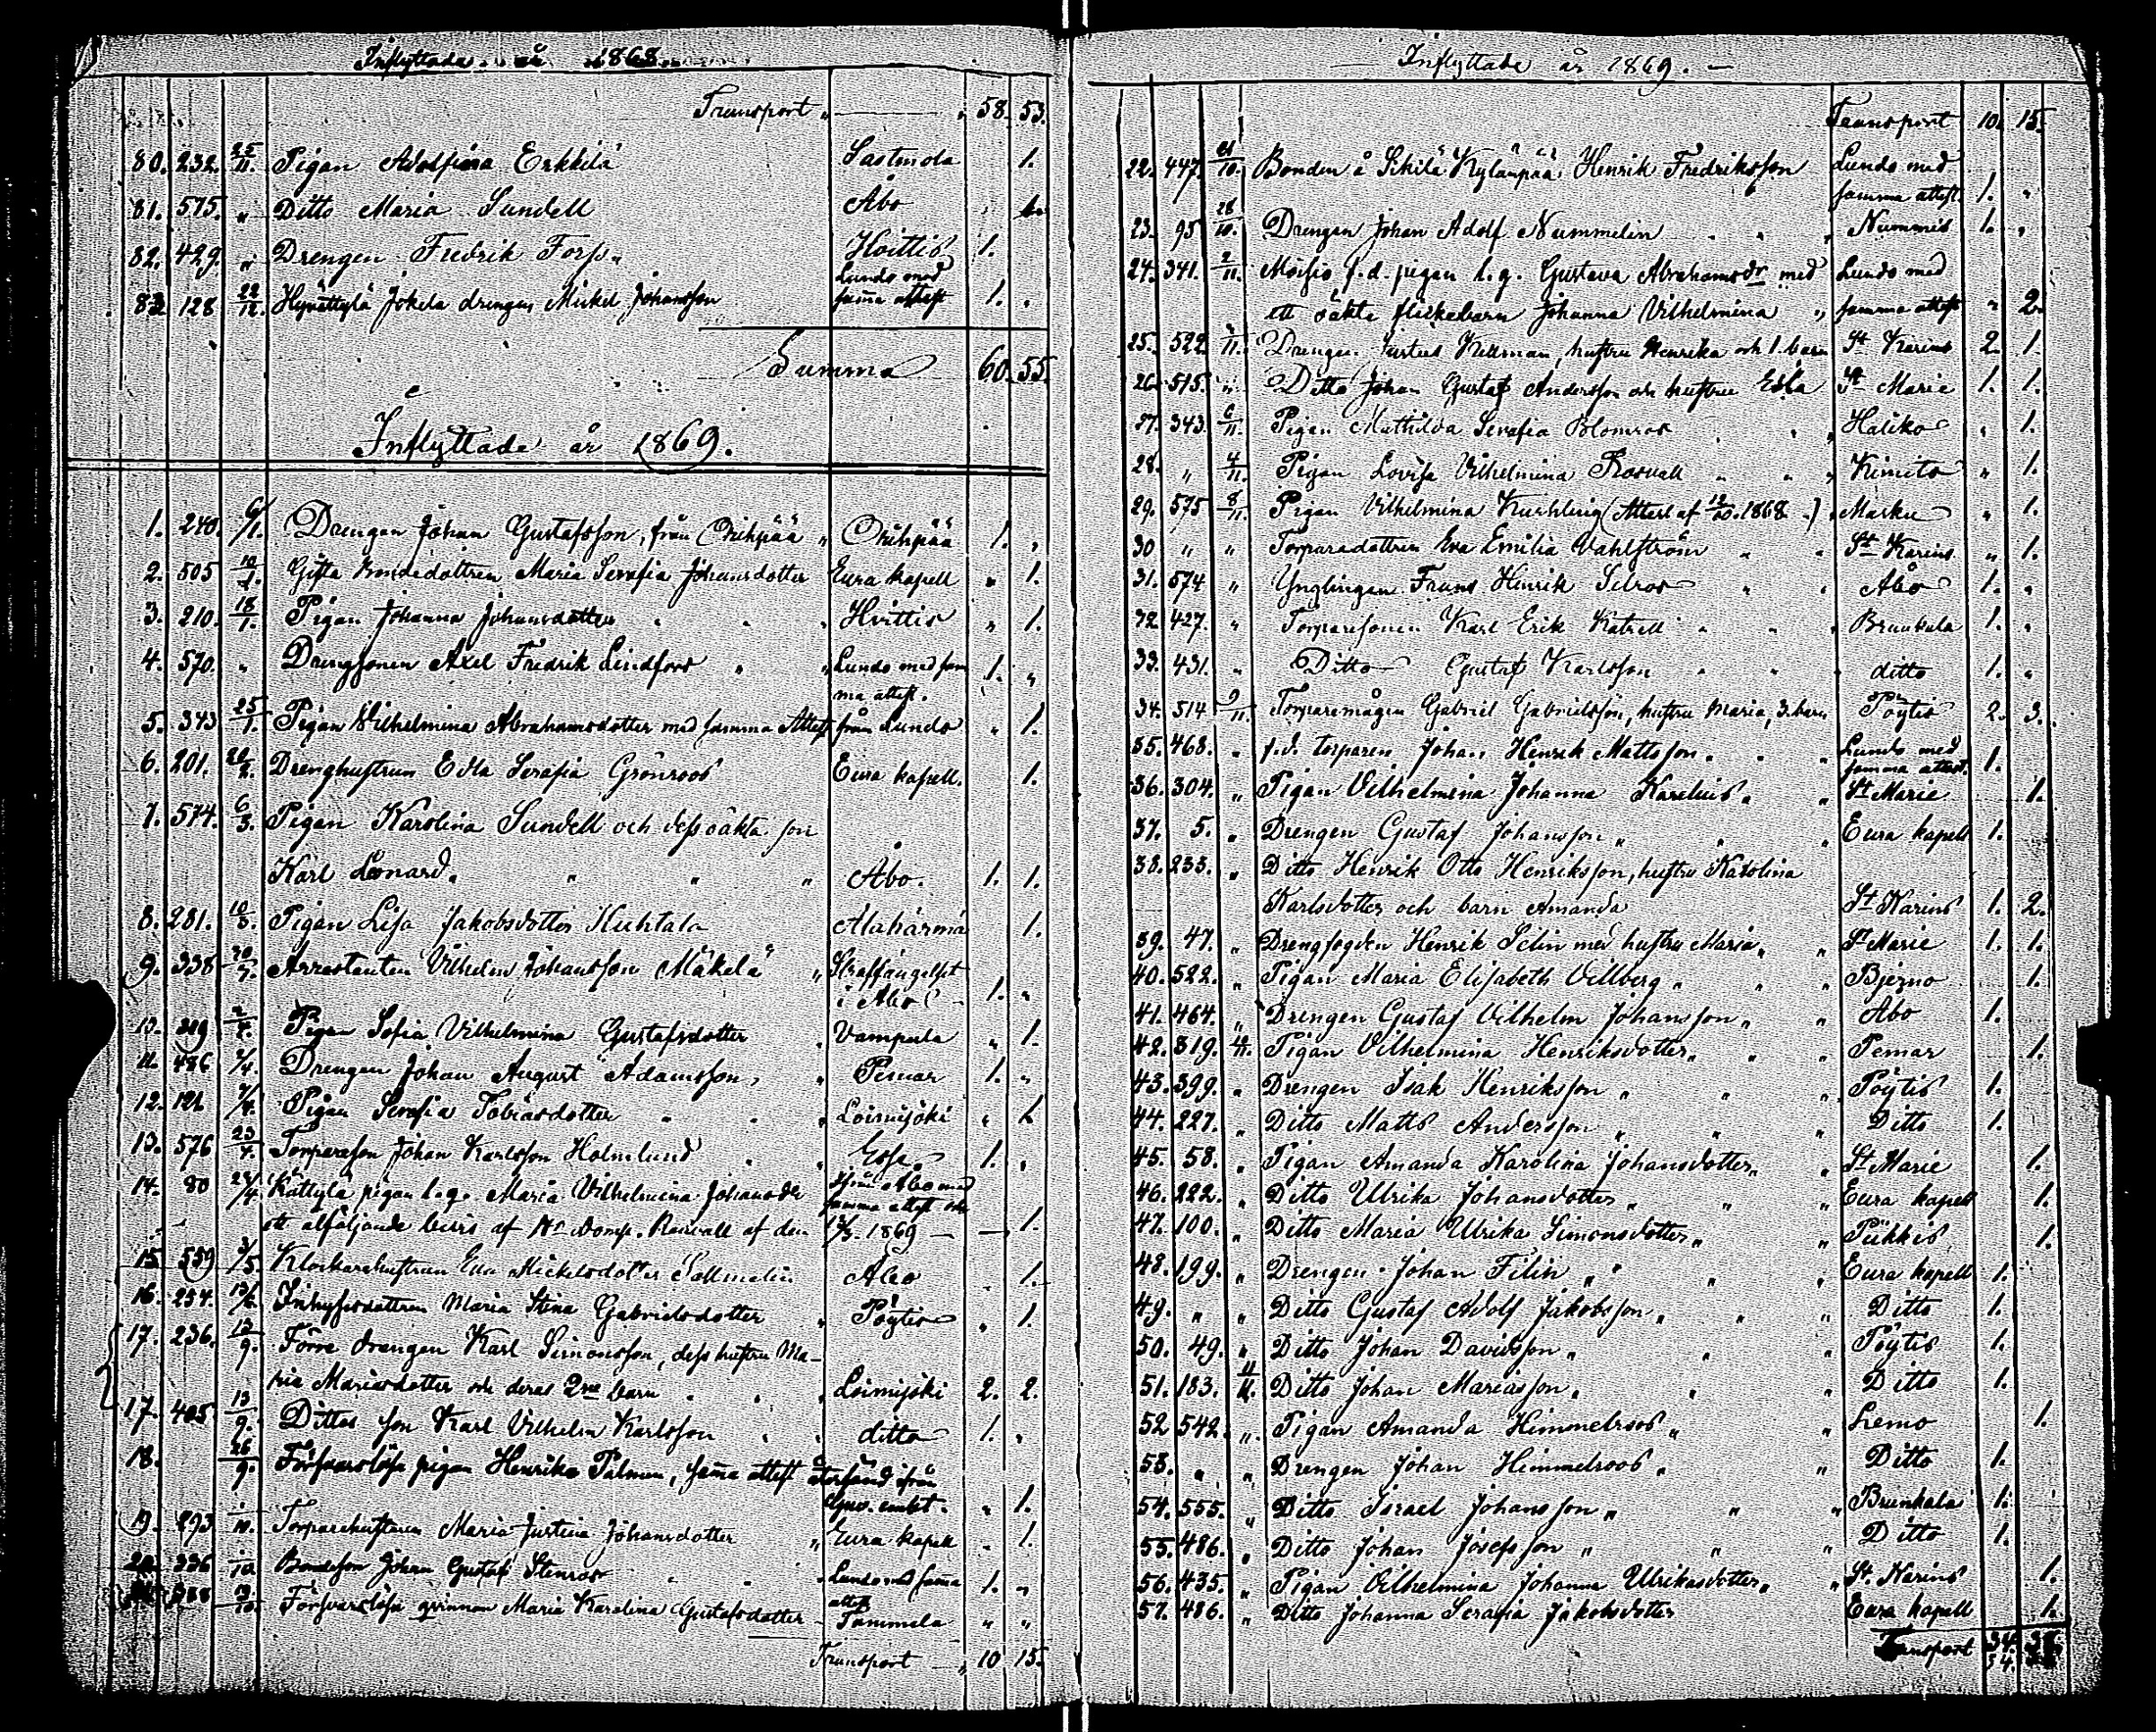 Inflyttade år 1868.
Transport „ 58. 53.
80. 232. 25/11. Pigan Adolfina Erkkilä Sastmola 1.
81. 575. „ Ditto Maria Sundell Åbo 1.
82. 429. „ Drengen Fredrik Forss „ Hvittis 1.
Lundo med
83. 128 22/12. Hypöttylä Jokela drengen Mickel Johansson samma attest 1. „
Summa 60. 55.
Inflyttade år 1869.
1. 240. 6/1. Drengen Johan Gustafsson, från Orihpää „ Orihpää 1. „
2. 505 10/1. Gifta bondedottren Maria Serafia Johansdotter Eura kapell „ 1.
3. 210. 18/1. Pigan Johanna Johansdotter „ Hvittis „ 1.
4. 570. „ Drengsonen Axel Fredrik Lindfors „ Lundo med sam 1. „
ma attest.
5. 343 25/1. Pigan Wilhelmina Abrahamsdotter med samma Attest från Lundo „ 1.
6. 201. 26/2. Drenghustrun Edla Serafia Grönroos Eura kapell. 1.
7. 574. 6/3. Pigan Karolina Sundell och dess oäkta son
Karl Leonard. „ „ „ Åbo. 1. 1.
8. 281. 10/3. Pigan Lisa Jakobsdotter Huhtala Alahärmä 1.
9. 338 20/3. Arrestanten Vilhelm Johansson Mäkelä „ Straffängelset
i Åbo 1. „
10. 319 2/4. Pigan Sofia Vilhelmina Gustafsdotter „ Vampula „ 1.
11. 486 2/4. Drengen Johan August Adamsson, „ Pemar 1. „
12. 121 7/4. Pigan Serafia Tobiasdotter „ Loimijoki „ 1.
13. 576 23/4. Torpareson Johan Karlsson Holmlund „ 1. „
14. 80 24/4. Kättylä pigan l.g. Maria Vilhelmina Johansdr Åbo med
samma attest och
ett alföljande bevis af af den 1869 — — 1.
15 559 3/5. Klockarehustrun Eva Mickelsdotter Sallmelin Åbo 1.
16. 254. 13/6. Inhysesdottren Maria Stina Gabrielsdotter „ Pöytis „ 1.
17. 236. 13/9. Förre drengen Karl Simonsson, dess hustru Ma-
ria Mariasdotter och deras 2ne barn „ Loimijoki 2. 2.
17. 405. 13/9. Dittos son Karl Vilhelm Karlsson „ ditto 1. „
18. 26/9. Försvarslösa pigan Henrika Palmen, sama attest återsänd från
Guv. embt. „ 1.
19. 293 1/10. Torparehustrun Maria Justina Johansdotter „ Eura kapell „ 1.
20. 336 1/10 Bondeson Johan Gustaf Stenros „ Lundo med sama 1. „
attest
288 13/10. Försvarslösa qvinnan Maria Karolina Gustafsdotter Tammela „ „
Transport „ 10 15.
Inflyttade år 1869.
Transport 10. 15.
22. 447. 21/10. Bonden å Sikilä Kylänpää Henrik Fredriksson Lundo med
samma attest. 1. „
23. 95 28/10. Drengen Johan Adolf Nummelin „ Nummis 1. „
24. 341. 2/11. Moisio f.d. pigan l.g. Gustava Abrahamsdr med Lundo med
ett oäkta flickebarn Johanna Vilhelmina „ samma attest „ 2.
25. 522 „/11. Drengen Justus Kellman, hustru Henrika och 1. barn St Karins 2. 1.
26. 515. „ Ditto Johan Gustaf Andersson och hustru Edla St Marie 1. 1.
27. 343. 6/11. Pigan Mathilda Serafia Blomros „ Haliko „ 1.
28. „ 4/11. Pigan Lovisa Vilhelmina Rosvall „ „ Kimito „ 1.
29. 575 8/11. Pigan Vilhelmina (Attest af 12/10. 1868.) Masku „ 1.
30 „ „ Torparedottren Eva Emilia Vahlström „ St Karins „ 1.
31. 574 „ Ynglingen Frans Henrik Selroos „ Åbo 1. „
32. 427. „ Torparesonen Karl Erik Katrill „ Brunkala 1. „
33. 431. „ Ditto Gustaf Karlsson „ ditto 1. „
34. 514 9/11. Torparemågen Gabriel Gabrielsson, hustru Maria, 3. barn Pöytis 2. 3.
35. 468. „ f.d. torparen Johan Henrik Mattsson. „ Lundo med
samma attest. 1.
36. 304. „ Pigan Vilhelmina Johanna Karelius. „ St Marie 1.
37. 5. „ Drengen Gustaf Johansson „ „ Eura kapell 1.
38. 233. „ Ditto Henrik Otto Henriksson, hustru Karolina
Karlsdotter och barn Amanda St Karins 1. 2.
39. 47. „ Drengfogden Henrik Selin med hustru Maria „ „ St Marie 1. 1.
40. 522. „ Pigan Maria Elisabeth Villberg „ „ „ Bjerno 1.
41. 464. „ Drengen Gustaf Vilhelm Johansson „ „ Åbo 1.
42. 319. 10/11. Pigan Vilhelmina Henriksdotter „ „ „ Pemar 1.
43. 399. „ Drengen Isak Henriksson „ „ „ Pöytis 1.
44. 227. „ Ditto Matts Andersson „ „ „ Ditto 1.
45. 58. „ Pigan Amanda Karolina Johansdotter „ „ St Marie 1.
46. 222. „ Ditto Ulrika Johansdotter „ „ „ Eura kapell 1.
47. 100. „ Ditto Maria Ulrika Simonsdotter „ „ Piikkis 1.
48. 199. „ Drengen Johan Filin „ „ „ Eura kapell 1.
49. „ „ Ditto Gustaf Adolf Jakobsson „ „ „ Ditto 1.
50. 49. „ Ditto Johan Davidsson „ „ „ Pöytis 1.
51. 183. 11/11. Ditto Johan Mariasson. „ „ Ditto 1.
52 542. „ Pigan Amanda Himmelroos „ „ Lemo 1.
53. „ „ Drengen Johan Himmelroos „ „ Ditto 1.
54. 555. „ Ditto Israel Johansson „ „ „ Brunkala 1.
55. 486. „ Ditto Johan Josefsson „ „ „ Ditto 1.
56. 435. „ Pigan Vilhelmina Johanna Ulrikasdotter „ „ St. Karins 1.
57. 486. „ Ditto Johanna Serafia Jakobsdotter Eura kapell 1.
Transport 34.